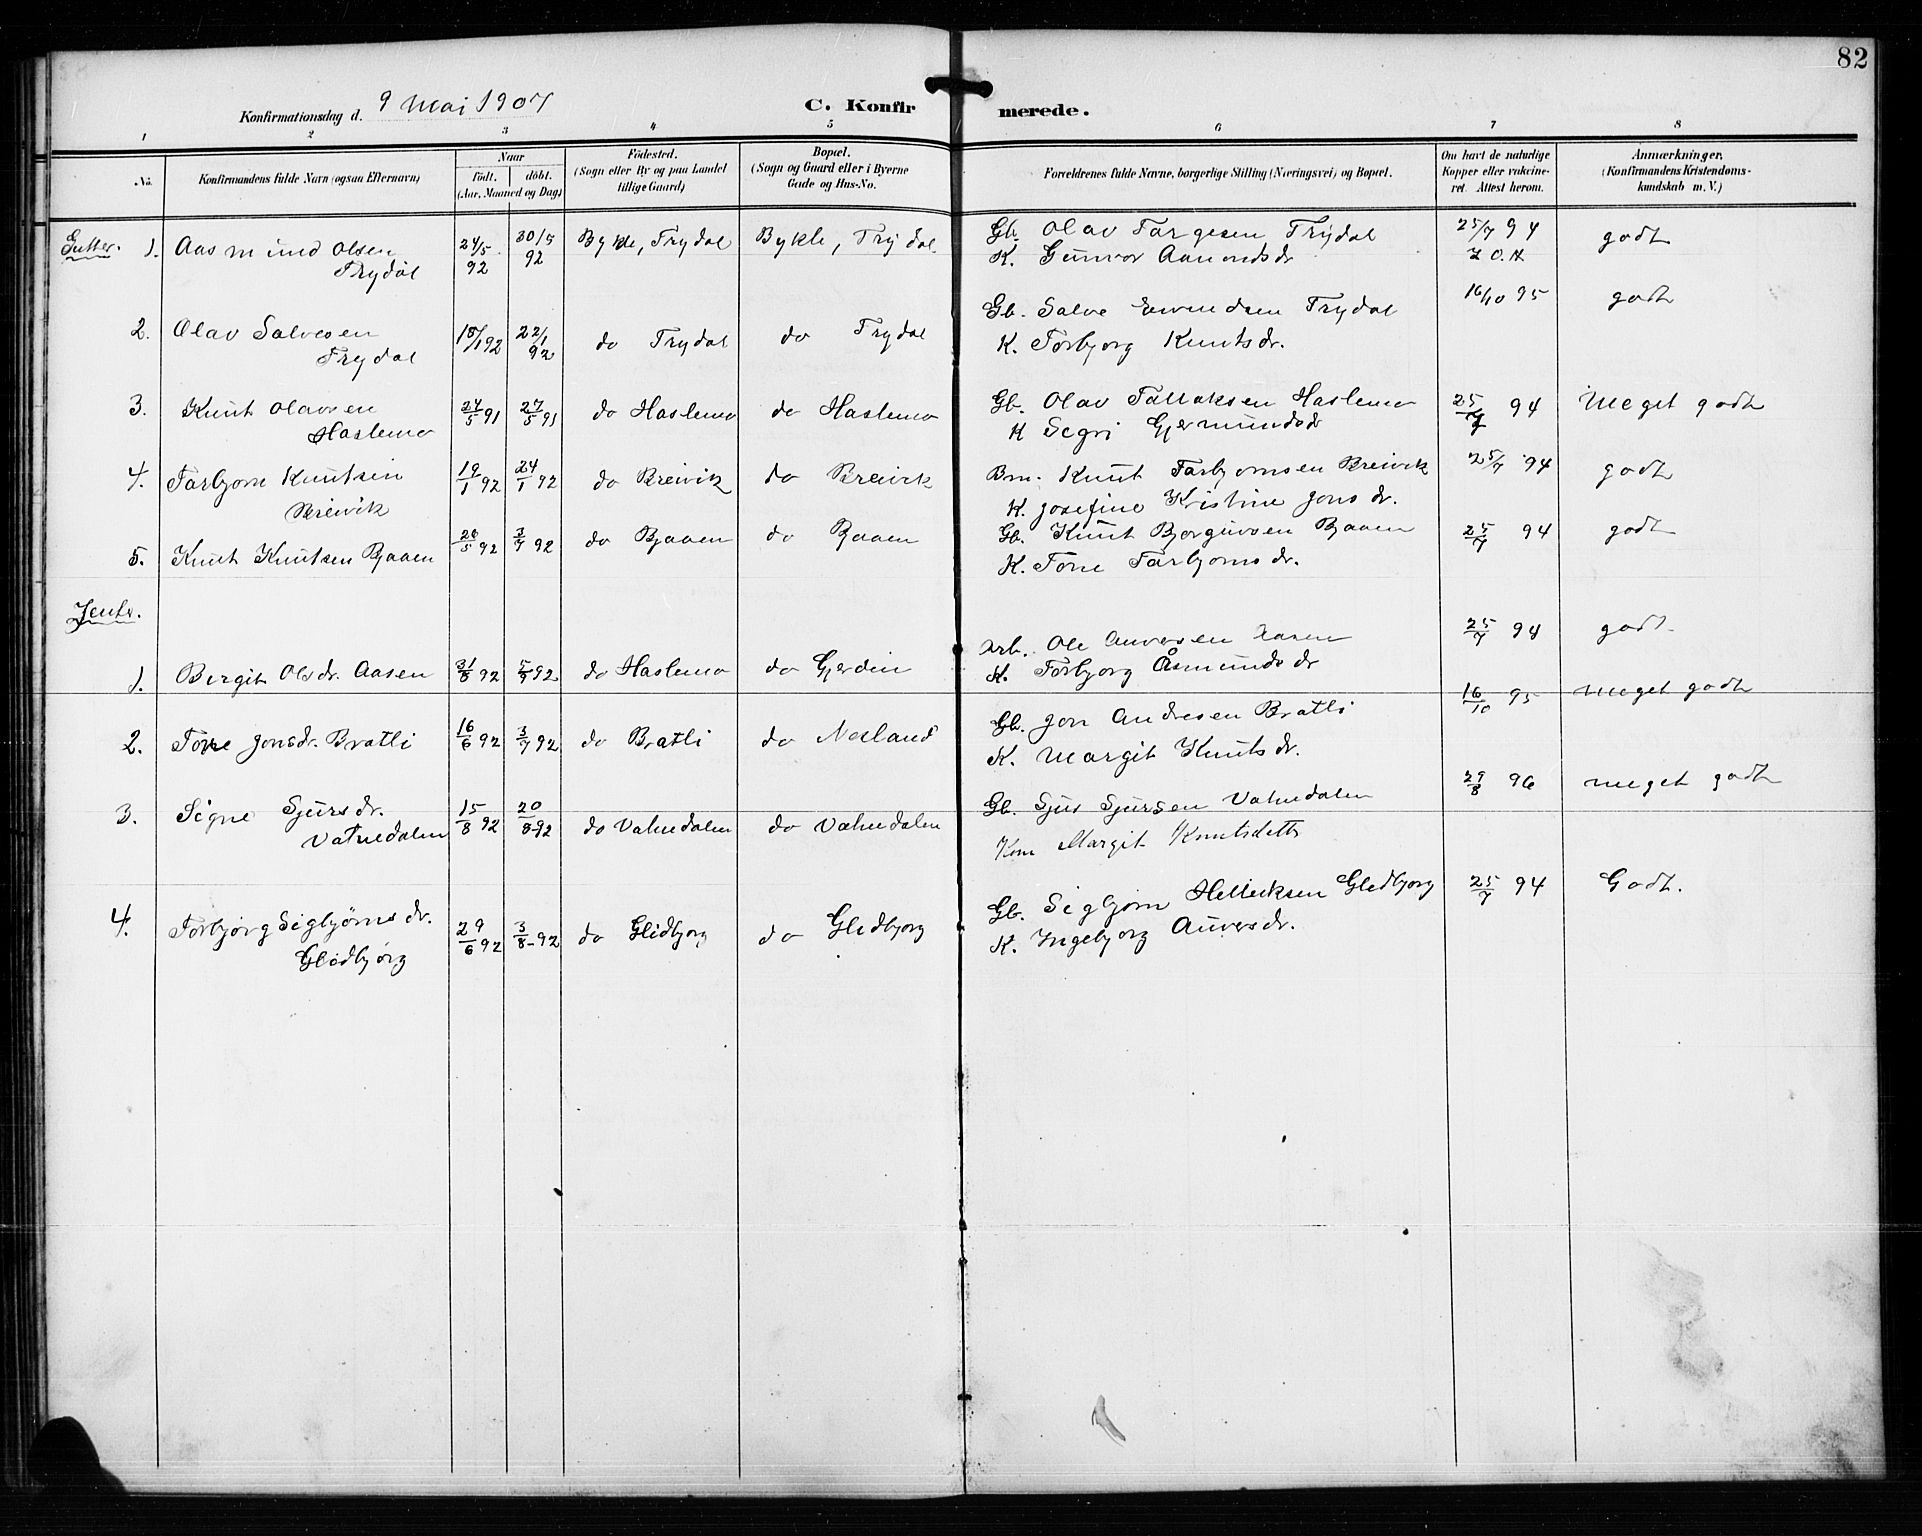 82
Konfirmationsdag d. 9 Mai 1907
C. Konfirmerede.
1 2 3 4 5 6 7 8
No.
Konfirmandens fulde Navn (ogsaa Efternavn)
Naar
født. døbt.
(Aar, Maaned og Dag)
Fødested.
(Sogn eller By og paa Landet
tillige Gaard)
Bopæl.
(Sogn og Gaard eller i Byerne
Gade og Hus-No.
Forældrenes fulde Navne, borgerlige Stilling (Næringsvei) og Bopæl.
Om havt de naturlige
Kopper eller vakcine-
ret. Attest herom.
Anmærkninger.
(Konfirmandens Kristendoms-
kundskab m. V.)
Gutter. 1. Aasmund Olsen 24/5 30/5 Bykle, Trydal Bykle, Trydal Gb. Olav Targesen Trydal 25/7 94 godt
Trydal 92 92 K. Gunvor Aamundsdr
2. Olav Salvesen 15/1 92 22/1 92 do Trydal do Trydal Gb. Salve Eivendsen Trydal 16/10 95 godt
Trydal K. Torbjorg Knutsdr.
3. Knut Olavsen 24/5 91 27/5 91 do Haslemo do Haslemo Gb. Olav Tallaksen Haslemo 25/7 94 Meget godt
Haslemo K Segri Gjermundsdr
4. Tarbjorn Knutsen 19/1 92 24/1 92 do Breivik do Breivik Bm. Knut Tarbjornsen Breivik 25/7 94 godt
Breivik K. Josefine Kristine Jonsdr.
5. Knut Knutsen Bjaaen 20/5 92 3/7 92 do Bjaaen do Bjaaen Gb. Knut Bjorgulvsen Bjaaen 25/7 94 godt
K. Tone Tarbjornsdr.
Jenter.
1. Bergit Olsdr. Aasen 31/8 92 5/9 92 do Haslemo do Gjerden Arb. Ole Anversen Aasen 25/7 94 godt
K. Torbjorg Åsmundsdr
2. Tone Jonsdr. Bratli 16/6 92 3/7 92 do Bratli do Nesland Gb. Jon Andresen Bratli 16/10 95 meget godt
K. Margit Knutsdr.
3. Signe Sjursdr. 15/8 92 20/8-92 do Vatnedalen do Vatnedalen Gb. Sjur Sjursen Vatnedalen 29/8 96 meget godt
Vatnedalen Kone Margit Knutsdatter
4. Torbjørg Sigbjørnsdr. 29/6 92 3/8-92 do Glidbjorg do Glidbjorg Gb. Sigbjørn Helleiksen Glidbjorg 25/7 94 Godt.
Glidbjørg K. Ingebjorg Anversdr.